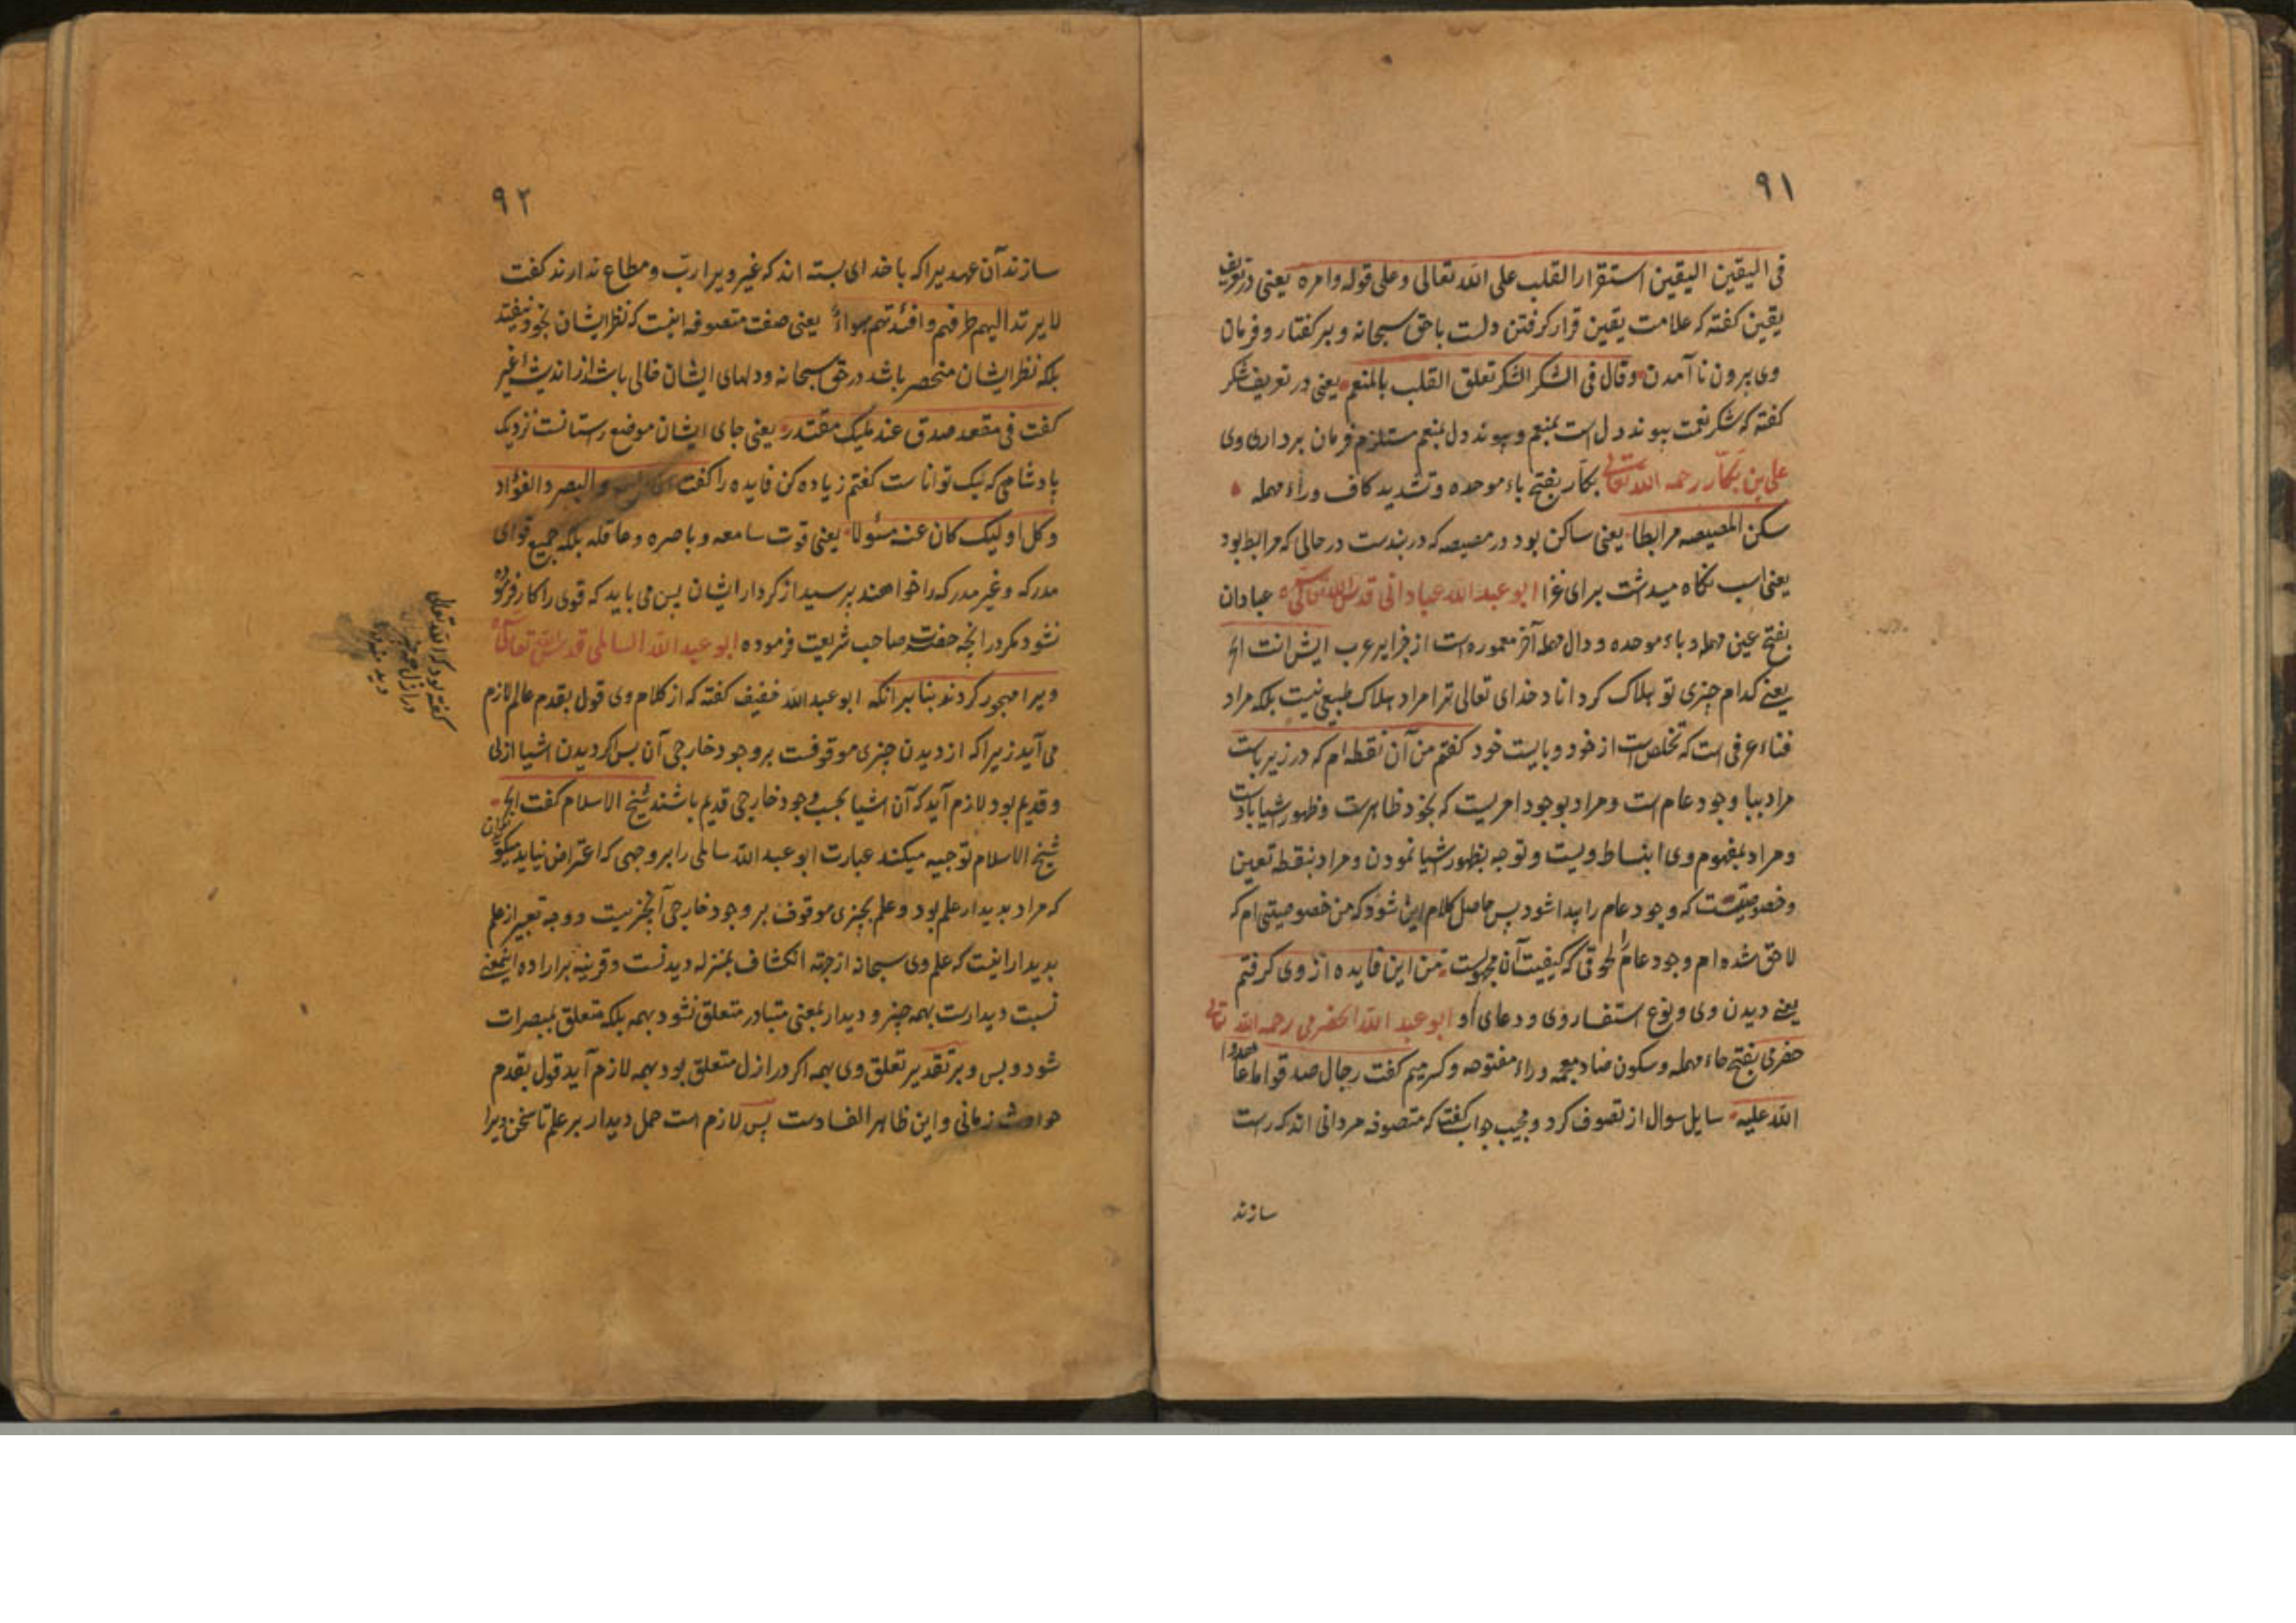 ٩١
فی الیقین الیقین استقرار القلب علی الله تعالی و علی قوله و امره یعنی در تعریف
یقین کفته که علامت یقین قرار کرفتن دلست با حق سبحانه و بر کفتار و فرمان
وی برون نا آمدن وقال فی الشکر الشکر تعلق القلب بالمنعم یعنی در تعریف شکر
کفته که شکر نعمت پیوند دل است بمنعم و پیوند دل بمنعم مستلزم فرمان برداری وی
علی بن بکّار رحمه الله تعالی بکّار بفتح باء موحده و تشدید کاف و راء مهمله
سکن المصیصه مرابطا یعنی ساکن بود در مصیصه که در بندست در حالی که مرابط بود
یعنی اسب نکاه میداشت برای غزا ابو عبد الله عبادانی قدس الله تعالی سره عبادان
بفتح عین مهمله و باء موحده و دال مهمله آخر معموره است از جزایر عرب ایش انت الخ
یعنے کدام چیزی تو هلاک کرداناد خدای تعالی ترا مراد هلاک طبیعی نیست بلکه مراد
فناء عرفی است که تخلص است از خود و بایست خود کفتم من آن نقطه ام که در زیر باست
مراد ببا وجود عام است و مراد بوجود امریست که بخود ظاهرست و ظهور اشیا باوست
و مراد بمفهوم وی انبساط ویست و توجه بظهور اشیا نمودن و مراد بنقطه تعین
و خصوصیتست که وجود عام را پیدا شود پس حاصل کلام این شود که من خصوصیتی ام که
لاحق شده ام وجود عام را لحوقی که کیفیت آن مجهولست من این فایده از وی کرفتم
یعنے دیدن وی و نوع استفسار وی و دعای او ابو عبد الله الحضرمی رحمه الله تعالی
حضرمی بفتح حاء مهمله و سکون ضاد معجمه و راء مفتوحه و کسر میم کفت رجال صدقوا ما عاهدوا
الله علیه سایل سوال از تصوف کرد و مجیب جواب کفت که متصوفه مردانی اند که راست
سازند
٩٢
سازند آن عهدیرا که با خدای بسته اند که غیر ویرا ربّ و مطاع ندارند کفت
لا یرتد الیهم طرفهم و افئدتهم هواء یعنی صفت متصوفه اینست که نظر ایشان بخود نیفتد
بلکه نظر ایشان منحصر باشد در حق سبحانه و دلهای ایشان خالی باشد از اندیشهٔ غیر
کفت فی مقعد صدق عند ملیک مقتدر یعنی جای ایشان موضع رستانست نزدیک
پادشاهی که نیک تواناست کفتم زیاده کن فایده را کفت والبصر والفؤاد
و کل اولیک کان عنه مسٔولا یعنی قوت سامعه و باصره و عاقله بلکه جمیع قوای
مدرکه و غیر مدرکه را خواهند پرسید از کردار ایشان پس می باید که قوی را کار فرموده
نشود مکر در انچه حضرت صاحب شریعت فرموده ابو عبد الله السالمی قدس الله تعالی سره
ویرا مهجور کردند بنا بر آنکه ابو عبد الله خفیف کفته که از کلام وی قول بقدم عالم لازم
می آید زیرا که از دیدن چیزی موقوفست بر وجود خارجی آن پس اکر دیدن اشیا ازلی
و قدیم بود لازم آید که آن اشیا بحسب وجود خارجی قدیم باشند شیخ الاسلام کفت الخ
شیخ الاسلام توجیه میکند عبارت ابو عبد الله سالمی را بر وجهی که اعتراض نیاید
که مراد بدیدار علم بود و علم بچیزی موقوف بر وجود خارجی آنچیز نیست و وجه تعبیر از علم
بدیدار اینست که علم وی سبحانه از جهة انکشاف بمنزله دیدنست و قرینه بر اراده اینمعنے
نسبت دیدارست بهمه چیز و دیدار بمعنی متبادر متعلق نشود بهمه بلکه متعلق بمبصرات
شود و بس و بر تقدیر تعلق وی بهمه اکر در ازل متعلق بود بهمه لازم آید قول بقدم
حوادث زمانی و این ظاهر الفسادست پس لازم است حمل دیدار بر علم تا سخن ویرا
کفته بود که الله تعالی
در ازل همه چیز